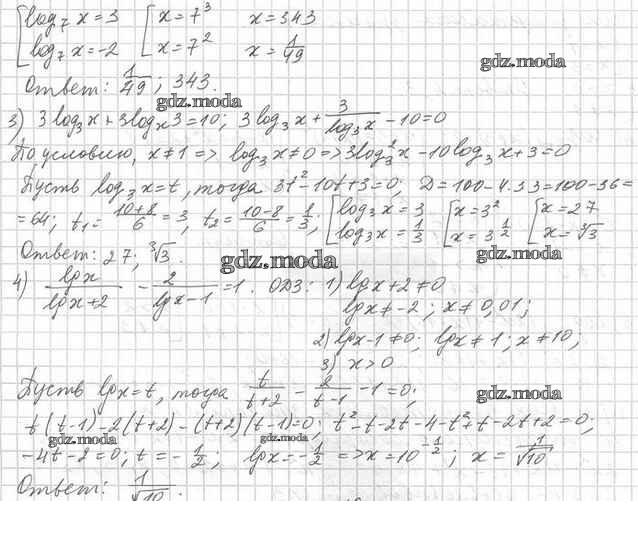 [log₇ x = 3 [x = 7³ x = 343
[log₇ x = -2 [x = 7² x = 1/49
gdz.moda
Ответ: 1/49; 343.
gdz.moda
3) 3log₃x + 3logₓ3 = 10; 3log₃x + 3/log₃x - 10 = 0
По условию, x ≠ 1 => log₃x ≠ 0 => 3log₃²x - 10log₃x + 3 = 0
Пусть log₃x = t, тогда 3t² - 10t + 3 = 0; D = 100 - 4·3·3 = 100 - 36 =
= 64; t₁ = (10+8)/6 = 3, t₂ = (10-8)/6 = 1/3; [log₃x = 3 [x = 3² [x = 27
[log₃x = 1/3 [x = 3^(1/2) [x = ∛3
Ответ: 27; ∛3.
gdz.moda gdz.moda
4) lgx/(lgx+2) - 2/(lgx-1) = 1. ОДЗ: 1) lgx + 2 ≠ 0
lgx ≠ -2; x ≠ 0,01;
2) lgx - 1 ≠ 0; lgx ≠ 1; x ≠ 10;
3) x > 0
Пусть lgx = t, тогда t/(t+2) - 2/(t-1) - 1 = 0;
gdz.moda
t(t-1) - 2(t+2) - (t+2)(t-1) = 0; t² - t - 2t - 4 - t² + t - 2t + 2 = 0;
gdz.moda gdz.moda
-4t - 2 = 0; t = -1/2; lgx = -1/2 => x = 10^(-1/2); x = 1/√10
gdz.moda
Ответ: 1/√10.